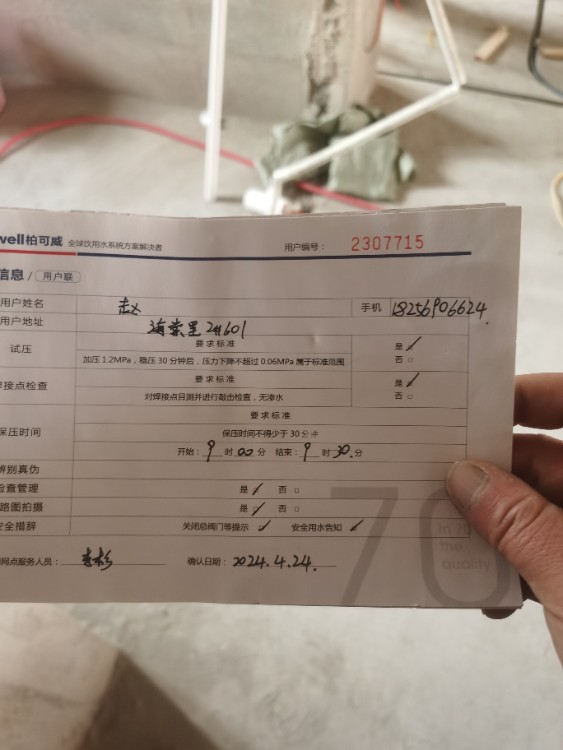 well柏可威 全球饮用水系统方案解决者 用户编号： 2307715
信息 / 用户联
用户姓名 赵 手机 18256906624
用户地址 2#601
试压 要求标准 是 ✓
加压 1.2MPa，稳压 30 分钟后，压力下降不超过 0.06MPa 属于标准范围 否 □
焊接点检查 要求标准 是 ✓
对焊接点目测并进行敲击检查，无渗水 否 □
保压时间 要求标准
保压时间不得少于 30 分钟
开始：9 时 00 分 结束：9 时 30 分
辨别真伪
检查管理 是 ✓ 否 □
路图拍摄 是 ✓ 否 □
安全措辞 关闭总阀门等提示 ✓ 安全用水告知 ✓
网点服务人员： 确认日期：2024.4.24.
70
In 70
the
quality